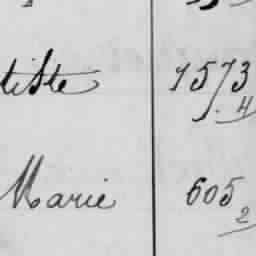 tiste 1573
4
Marie 605
2